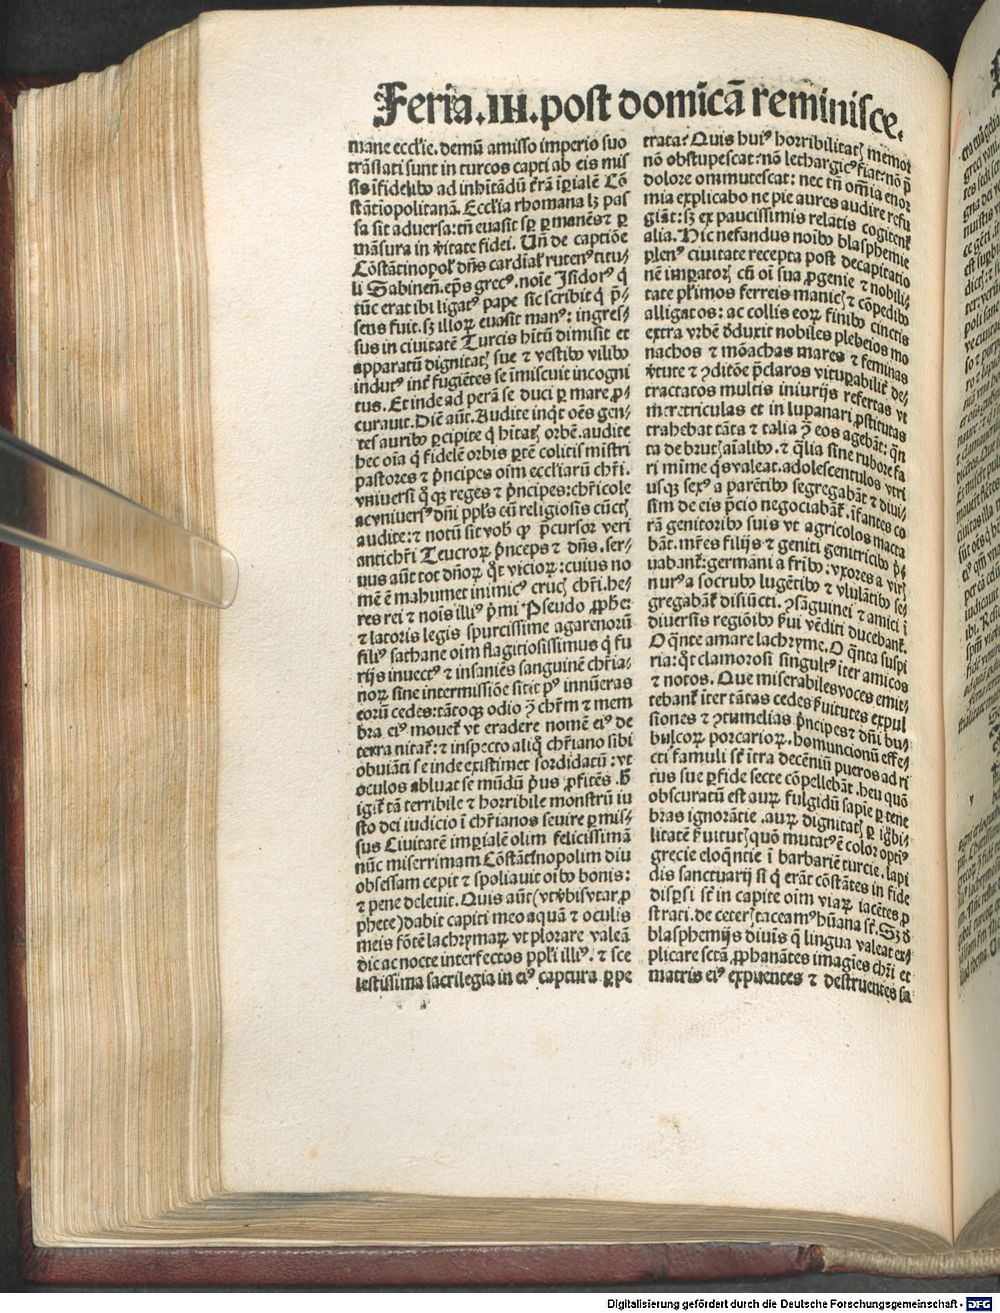 Feria.III.post domicā reminisce.
mane ecclie. demū amisso imperio suo
trāslati sunt in turcos capti ab eis mis
sis īfidelibꝰ ad inhītādū t̄rā īꝑialē Cō
stātiopolitanā. Ecclia rhomana lꝫ pas
sa sit aduersa: tn̄ euasit sꝑ ꝑ manēs ⁊ ꝑ
māsura in v̄itate fidei. Un̄ de captiōe
Cōstātinopol̄ dn̄s cardial̓ rutenꝰ titu-
li Sabinen̄. ep̄s grecꝰ. noīe Isidorꝰ q̇
tūc erat ibi ligatꝰ pape sic scribit q̇ p̄-
sens fuit. sꝫ illoꝝ euasit manꝰ: ingres-
sus in ciuitatē Turcis hītū dimisit et
apparatū dignitatꝭ sue ⁊ vestibꝰ vilibꝰ
indutꝰ int̓ fugiētes se īmiscuit incogni
tus. Et inde ad perā se duci ꝑ mare ꝓ-
curauit. Diē aūt. Audite inqt oēs gen-
tes auribꝰ ꝑcipite q̇ hītatꝭ orbē. audite
hec oīa q̇ fidelē orbis ꝑtē colitis mistri
pastores ⁊ p̄ncipes oīm eccliarū chr̄i.
vniuersi q̇ꝫ reges ⁊ p̄ncipes: chr̄icole
ac vniuersꝰ dn̄i ppl̄s cū religiosis cūctꝭ
audite: ⁊ notū sit vob̄ qꝫ p̄cursor veri
antichr̄i Teucroꝝ p̄nceps ⁊ dn̄s. ser-
uus aūt tot dn̄oꝝ q̄t vicioꝝ: cuius no
mē ē mahumet inimicꝰ crucꝭ chr̄i. he-
res rei ⁊ nois illiꝰ p̄mi Pseudo ꝓphe:
⁊ latoris legis spurcissime agarenorū
filiꝰ sathane oīm flagitiosissimus q̇ fu
rijs inuectꝰ ⁊ insaniēs sanguinē chr̄ia-
noꝝ sine intermissiōe sitit pꝰ innūeras
eorū cedes: tātoqꝫ odio ꝯ̄ chr̄m ⁊ mem
bra eiꝰ mouet̓ vt eradere nomē eiꝰ de
terra nitat̓: ⁊ inspecto aliq̇ chr̄iano sibi
obuiāti se inde existimet sordidatū: vt
oculos abluat se mūdū p̄us ꝓfitēs. h̄
igit̓ tā terribile ⁊ horribile monstrū iu
sto dei iudicio ī chr̄ianos seuire ꝑmis-
sus Ciuitatē imꝑialē olim felicissimā
nūc miserrimam Cōstātinopolim diu
obsessam cepit ⁊ spoliauit oībꝰ bonis:
⁊ pene deleuit. Quis aūt (vt v̄bis vtar ꝓ
phete) dabit capiti meo aquā ⁊ oculis
meis fōtē lachrymaꝝ vt plorare valeā
dic ac nocte interfectos ppl̄i illiꝰ. ⁊ sce
lestissima sacrilegia in eiꝰ captura ꝑpe
trata? Quis huiꝰ horribilitatꝭ memor
nō obstupescat: nō lethargicꝰ fiat: nō p̄
dolore ommutescat: nec tn̄ oīa enor
mia explicabo ne pie aures audire refu
giāt: sꝫ ex paucissimis relatis cogitent̓
alia. Hic nefandus noībꝰ blasphemie
plenꝰ ciuitate recepta post decapitatio
nē imꝑatorꝭ cū oī sua progenie ⁊ nobili-
tate pl̓imos ferreis manicꝭ ⁊ cōpedibꝰ
alligatos: ac collis eoꝝ funibꝰ cinctis
extra vrbē deduxit nobiles plebeios mo
nachos ⁊ mōachas mares ⁊ feminas
v̓tute ⁊ ꝯditōe p̄claros vituꝑabilit̓ de-
tractatos multis iniurijs refertas vt
meretriculas et in lupanari ꝓstitutas
trahebat tāta ⁊ talia ꝯ̄ eos agebāt: qn̄
ta de brutꝭ aīalibꝰ. ⁊ q̄lia sine rubore fa
ri mīme q̇s valeat. adolescentulos vtri
usqꝫ sexꝰ a parētibꝰ segregabāt ⁊ diui-
sim de eis p̄cio negociabāt̓. īfantes co
rā genitoribꝰ suis vt agricolos macta
bāt. mr̄es filijs ⁊ geniti genitricibꝰ p̄-
uabant̓: germani a fr̄ibꝰ: vxores a virꝭ
nurꝰ a socrubꝰ lugētibꝰ ⁊ vlulātibꝰ se-
gregabāt̓ disiūcti. ꝯsāguinei ⁊ amici ī
diuersis regiōibꝰ s̓ui vēditi ducebant̓.
O q̄nte amare lachryme. O q̄nta suspi
ria: q̄t clamorosi singultꝰ īter amicos
⁊ notos. Que miserabiles voces emit-
tebant̓ īter tātas cedes s̓uitutes expul
siones ⁊ ꝯtumelias p̄ncipes ⁊ dn̄i bu-
bulcoꝝ porcarioꝝ. homuncionū effe-
cti famuli s̄t īfra decēniū pueros ad ri
tus sue ꝑfide secte cōpellebāt. heu quō
obscuratū est auꝝ fulgidū sapīe ꝑ tene
bras ignorātie. auꝝ dignitatꝭ ꝑ ignōbi
litatē s̓uitutꝭ quō mutatꝰ ē color optīꝰ
grecie eloqntie ī barbariē turcie. lapi
dis sanctuarij si q̇ erāt cōstātes in fide
disꝑsi s̄t in capite oīm viaꝝ iacētes ꝓ
strati. de ceterꝭ taceamꝰ hūana s̄t. Sꝫ d̄
blasphemijs diuīs q̄ lingua valeat ex-
plicare sctā ꝓphanātes imagīes chr̄i et
matris eiꝰ expuentes ⁊ destruentes sa
Digitalisierung gefördert durch die Deutsche Forschungsgemeinschaft - DFG